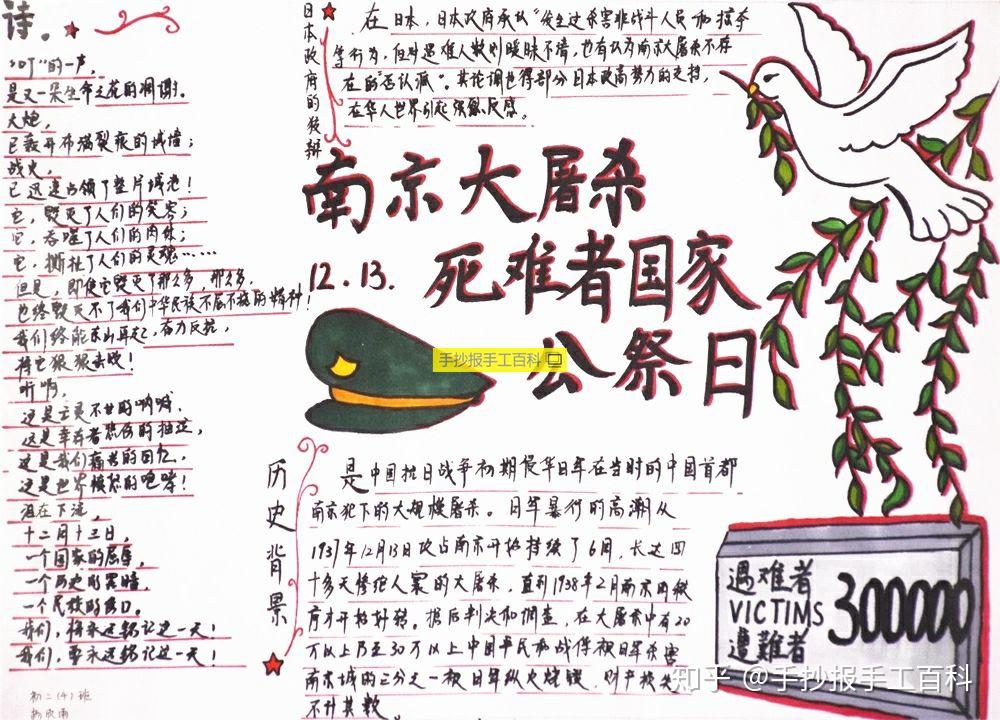 诗。
“叮”的一声,
是又一朵生命之花的凋谢。
大炮,
已轰开布满裂痕的城墙;
战火,
已迅速占领了整片城池!
它,毁灭了人们的笑容;
它,吞噬了人们的肉体;
它,撕扯了人们的灵魂……
但是,即使它毁灭了那么多,那么多,
也终毁灭不了我们中华民族不屈不挠的精神!
我们终能东山再起,奋力反抗,
将它狠狠击败!
听啊,
这是亡灵不甘的呐喊,
这是幸存者悲伤的抽泣,
这是我们痛苦的回忆,
这是世界愤怒的咆哮!
泪在下流,
十二月十三日,
一个国家的屈辱,
一个历史的黑暗,
一个民族的伤口。
我们,将永远铭记这一天!
我们,要永远铭记这一天!
初二(4)班
日本政府的狡辩
在日本,日本政府承认“发生过杀害非战斗人员和掠夺
等行为,但对遇难人数则暧昧不清,也有认为南京大屠杀不存
在的“否认派”。其论调也得部分日本政商势力的支持,
在华人世界引起强烈反感。
南京大屠杀
12.13. 死难者国家
公祭日
手抄报手工百科
历史背景
是中国抗日战争初期侵华日军在当时的中国首都
南京犯下的大规模屠杀。日军暴行的高潮从
1937年12月13日攻占南京开始持续了6周,长达四
十多天惨绝人寰的大屠杀,直到1938年2月南京的秩
序才开始好转。据后判决和调查,在大屠杀中有20
万以上乃至30万以上中国平民和战俘被日军杀害
南京城的三分之一被日军纵火烧毁,财产损失
不计其数。
遇难者
VICTIMS
遭難者
300000
知乎 @手抄报手工百科